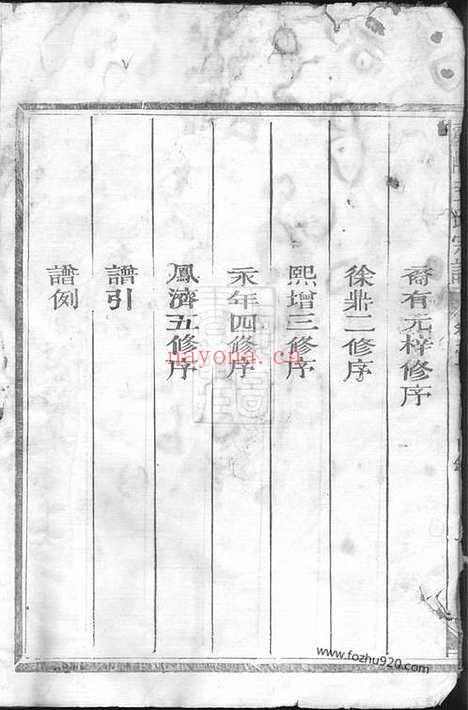 裔有元梓修序
徐鼎二修序
熙增三修序
永年四修序
鳳濟五修序
譜引
譜例
nayona.cn
www.fozhu920.com